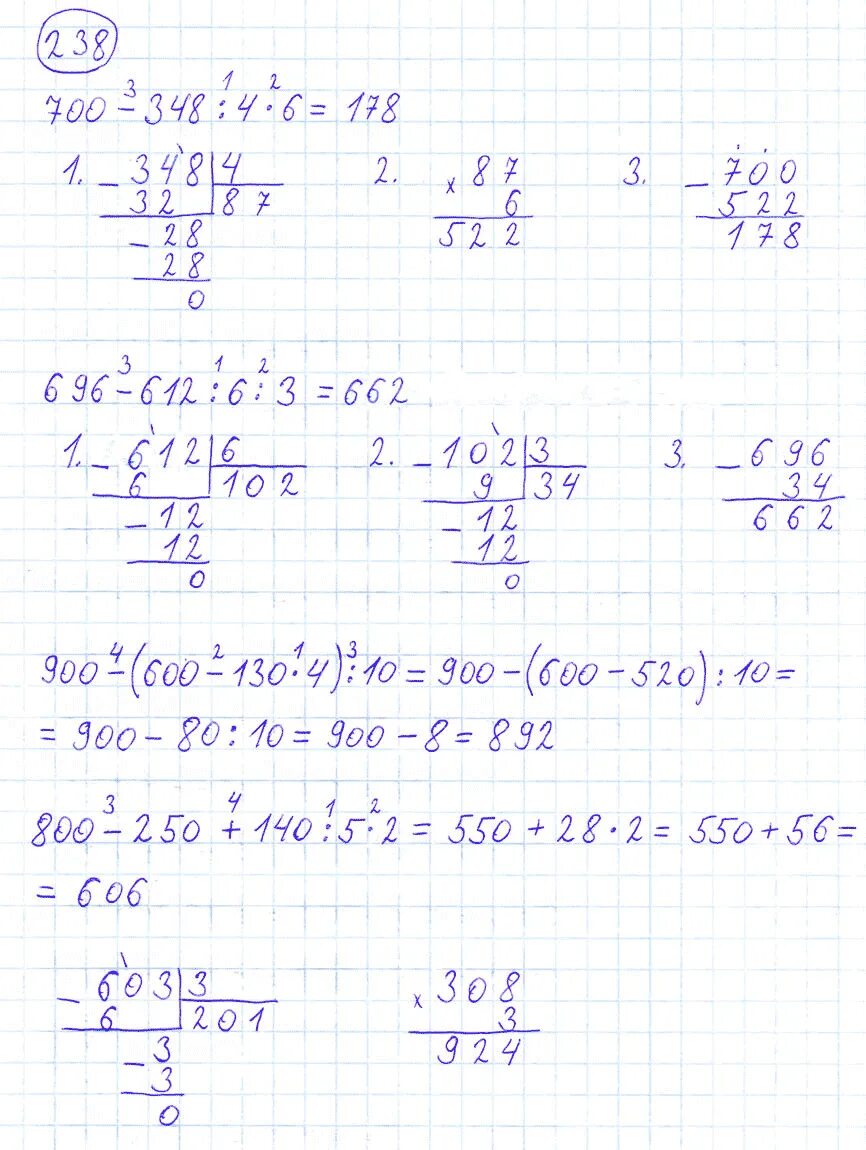 238
3 1 2
700 - 348 : 4 · 6 = 178
1. - 348 4 2. x 87 3. - 700
32 87 6 522
- 28 522 178
28
0
3 1 2
696 - 612 : 6 : 3 = 662
1. - 612 6 2. - 102 3 3. - 696
6 102 9 34 34
- 12 - 12 662
12 12
0 0
4 2 1 3
900 - (600 - 130 · 4) : 10 = 900 - (600 - 520) : 10 =
= 900 - 80 : 10 = 900 - 8 = 892
3 4 1 2
800 - 250 + 140 : 5 · 2 = 550 + 28 · 2 = 550 + 56 =
= 606
- 603 3 x 308
6 201 3
- 3 924
3
0